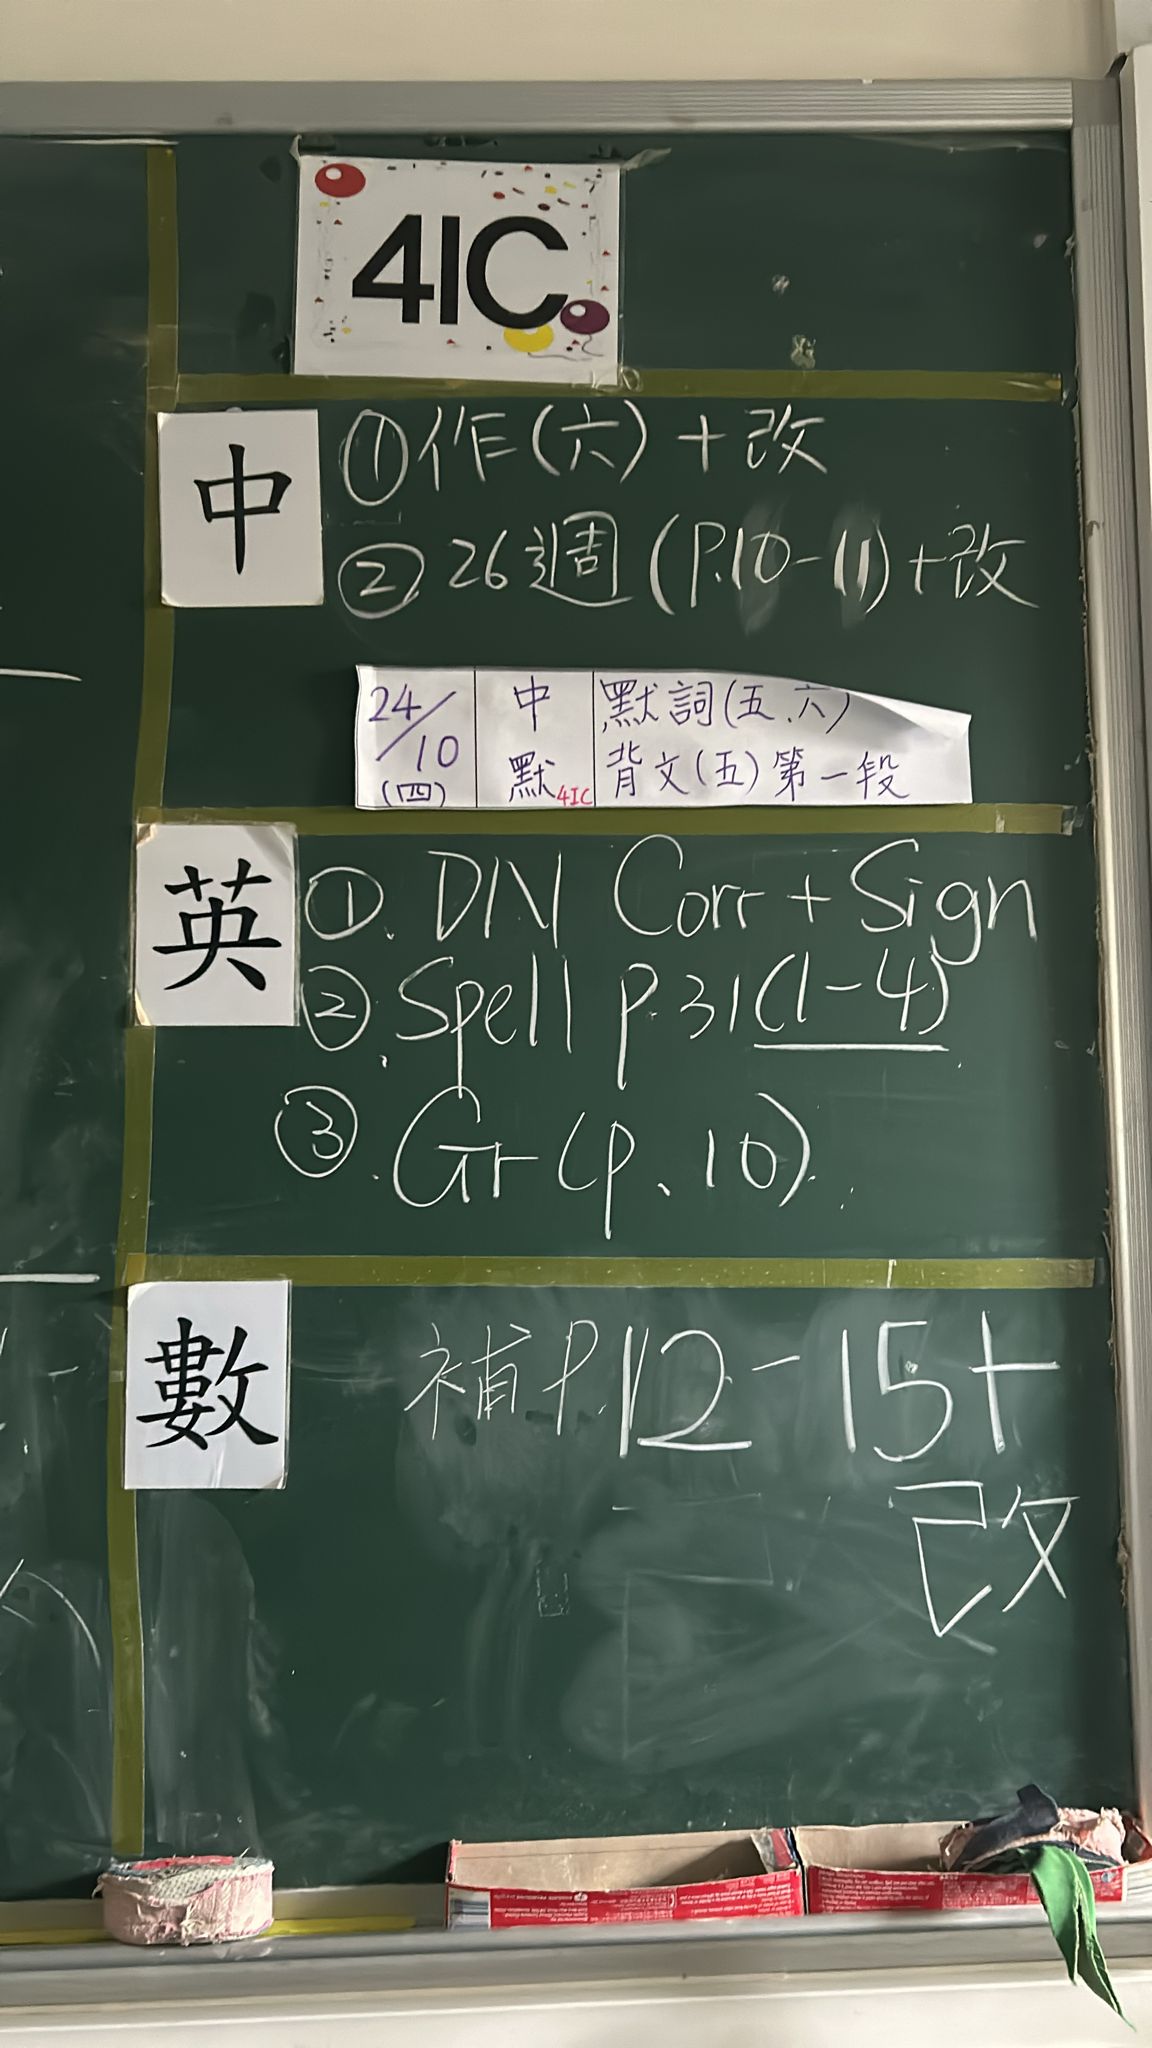 4IC
中
①作(六)+改
② 26週(P.10-11)+改
24/10 (四)
中默 4IC
默詞(五、六)
背文(五)第一段
英
①. DN Corr + Sign
②. Spell p.31(1-4)
③. Gr (p.10).
數
補P.12-15+
改